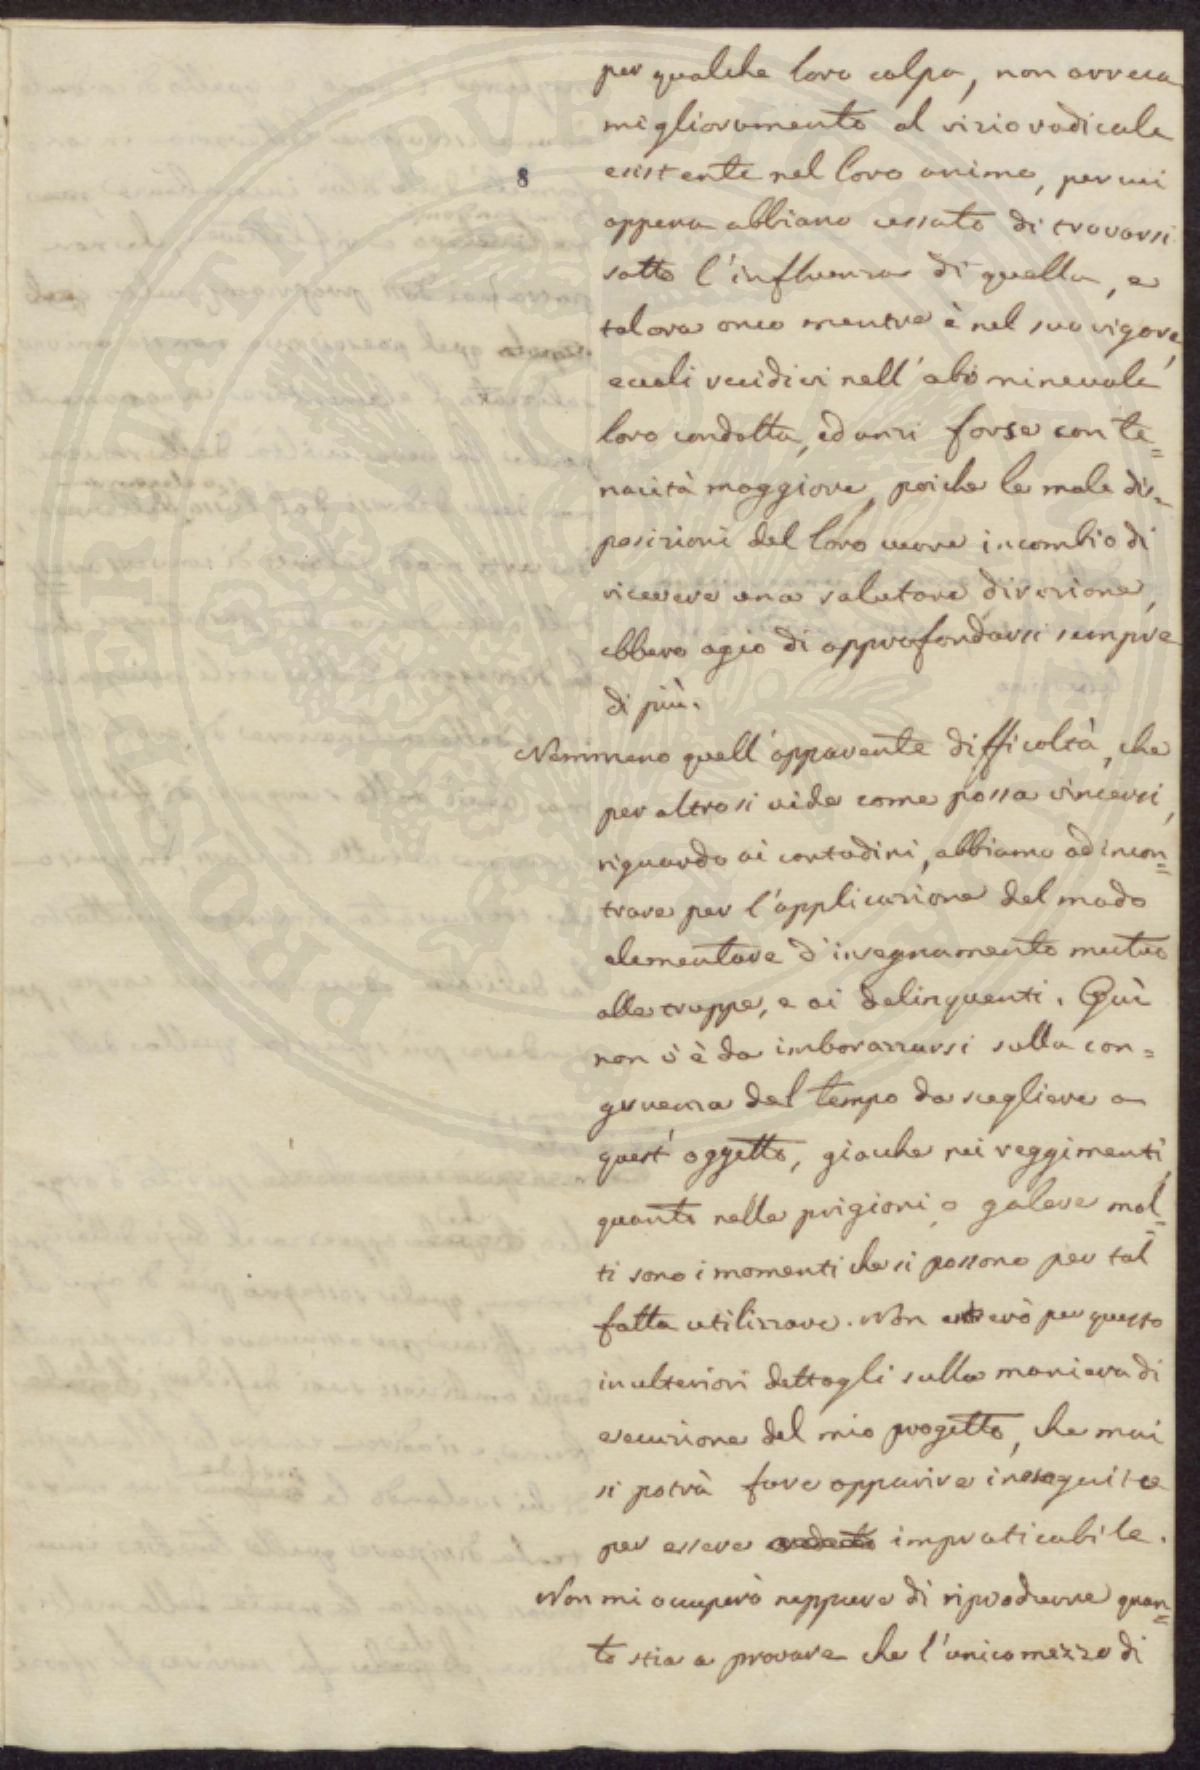 8
per qualche loro colpa, non arreca
miglioramento al vizio radicale
esistente nel loro animo, per cui
appena abbiano cessato di trovarsi
sotto l'influenza di quella, e
talora anco mentre è nel suo vigore,
eccoli recidivi nell'abominevole
loro condotta, ed anzi forse con te=
nacità maggiore, poiche le male dis=
posizioni del loro cuore in cambio di
ricevere una salutare divisione,
ebbero agio di approfondarsi sempre
di più.
Nemmeno quell'apparente difficoltà, che
per altro si vide come possa vincersi,
riguardo ai contadini, abbiamo ad incon=
trare per l'applicazione del modo
elementare d'insegnamento mutuo
alle truppe, e ai delinquenti. Quì
non v'è da imbarazzarsi sulla con=
gruenza del tempo da scegliere a
quest'oggetto, giacche nei reggimenti,
quanto nelle prigioni o galere mol=
ti sono i momenti che si possono per tal
fatta utilizzare. Non entrerò per questo
in ulteriori dettagli sulla maniera di
esecuzione del mio progetto, che mai
si potrà fare apparire ineseguito
per essere impraticabile.
Non mi occuperò neppure di riprodurre quan=
to stia a provare che l'unico mezzo di
PROSPERITATI PUBLICAE